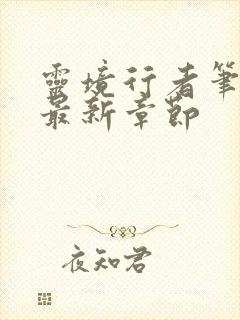 靈境行者筆
最新章節
夜知君